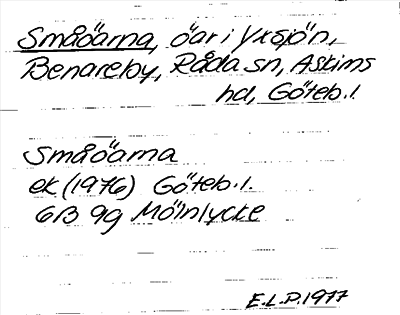 Småöarna, öar i Yxsjön,
Benareby, Råda sn, Askims
hd, Göteb. l.
Småöarna
ek (1976) Göteb. l.
6B 9g Mölnlycke
E.L.P. 1977